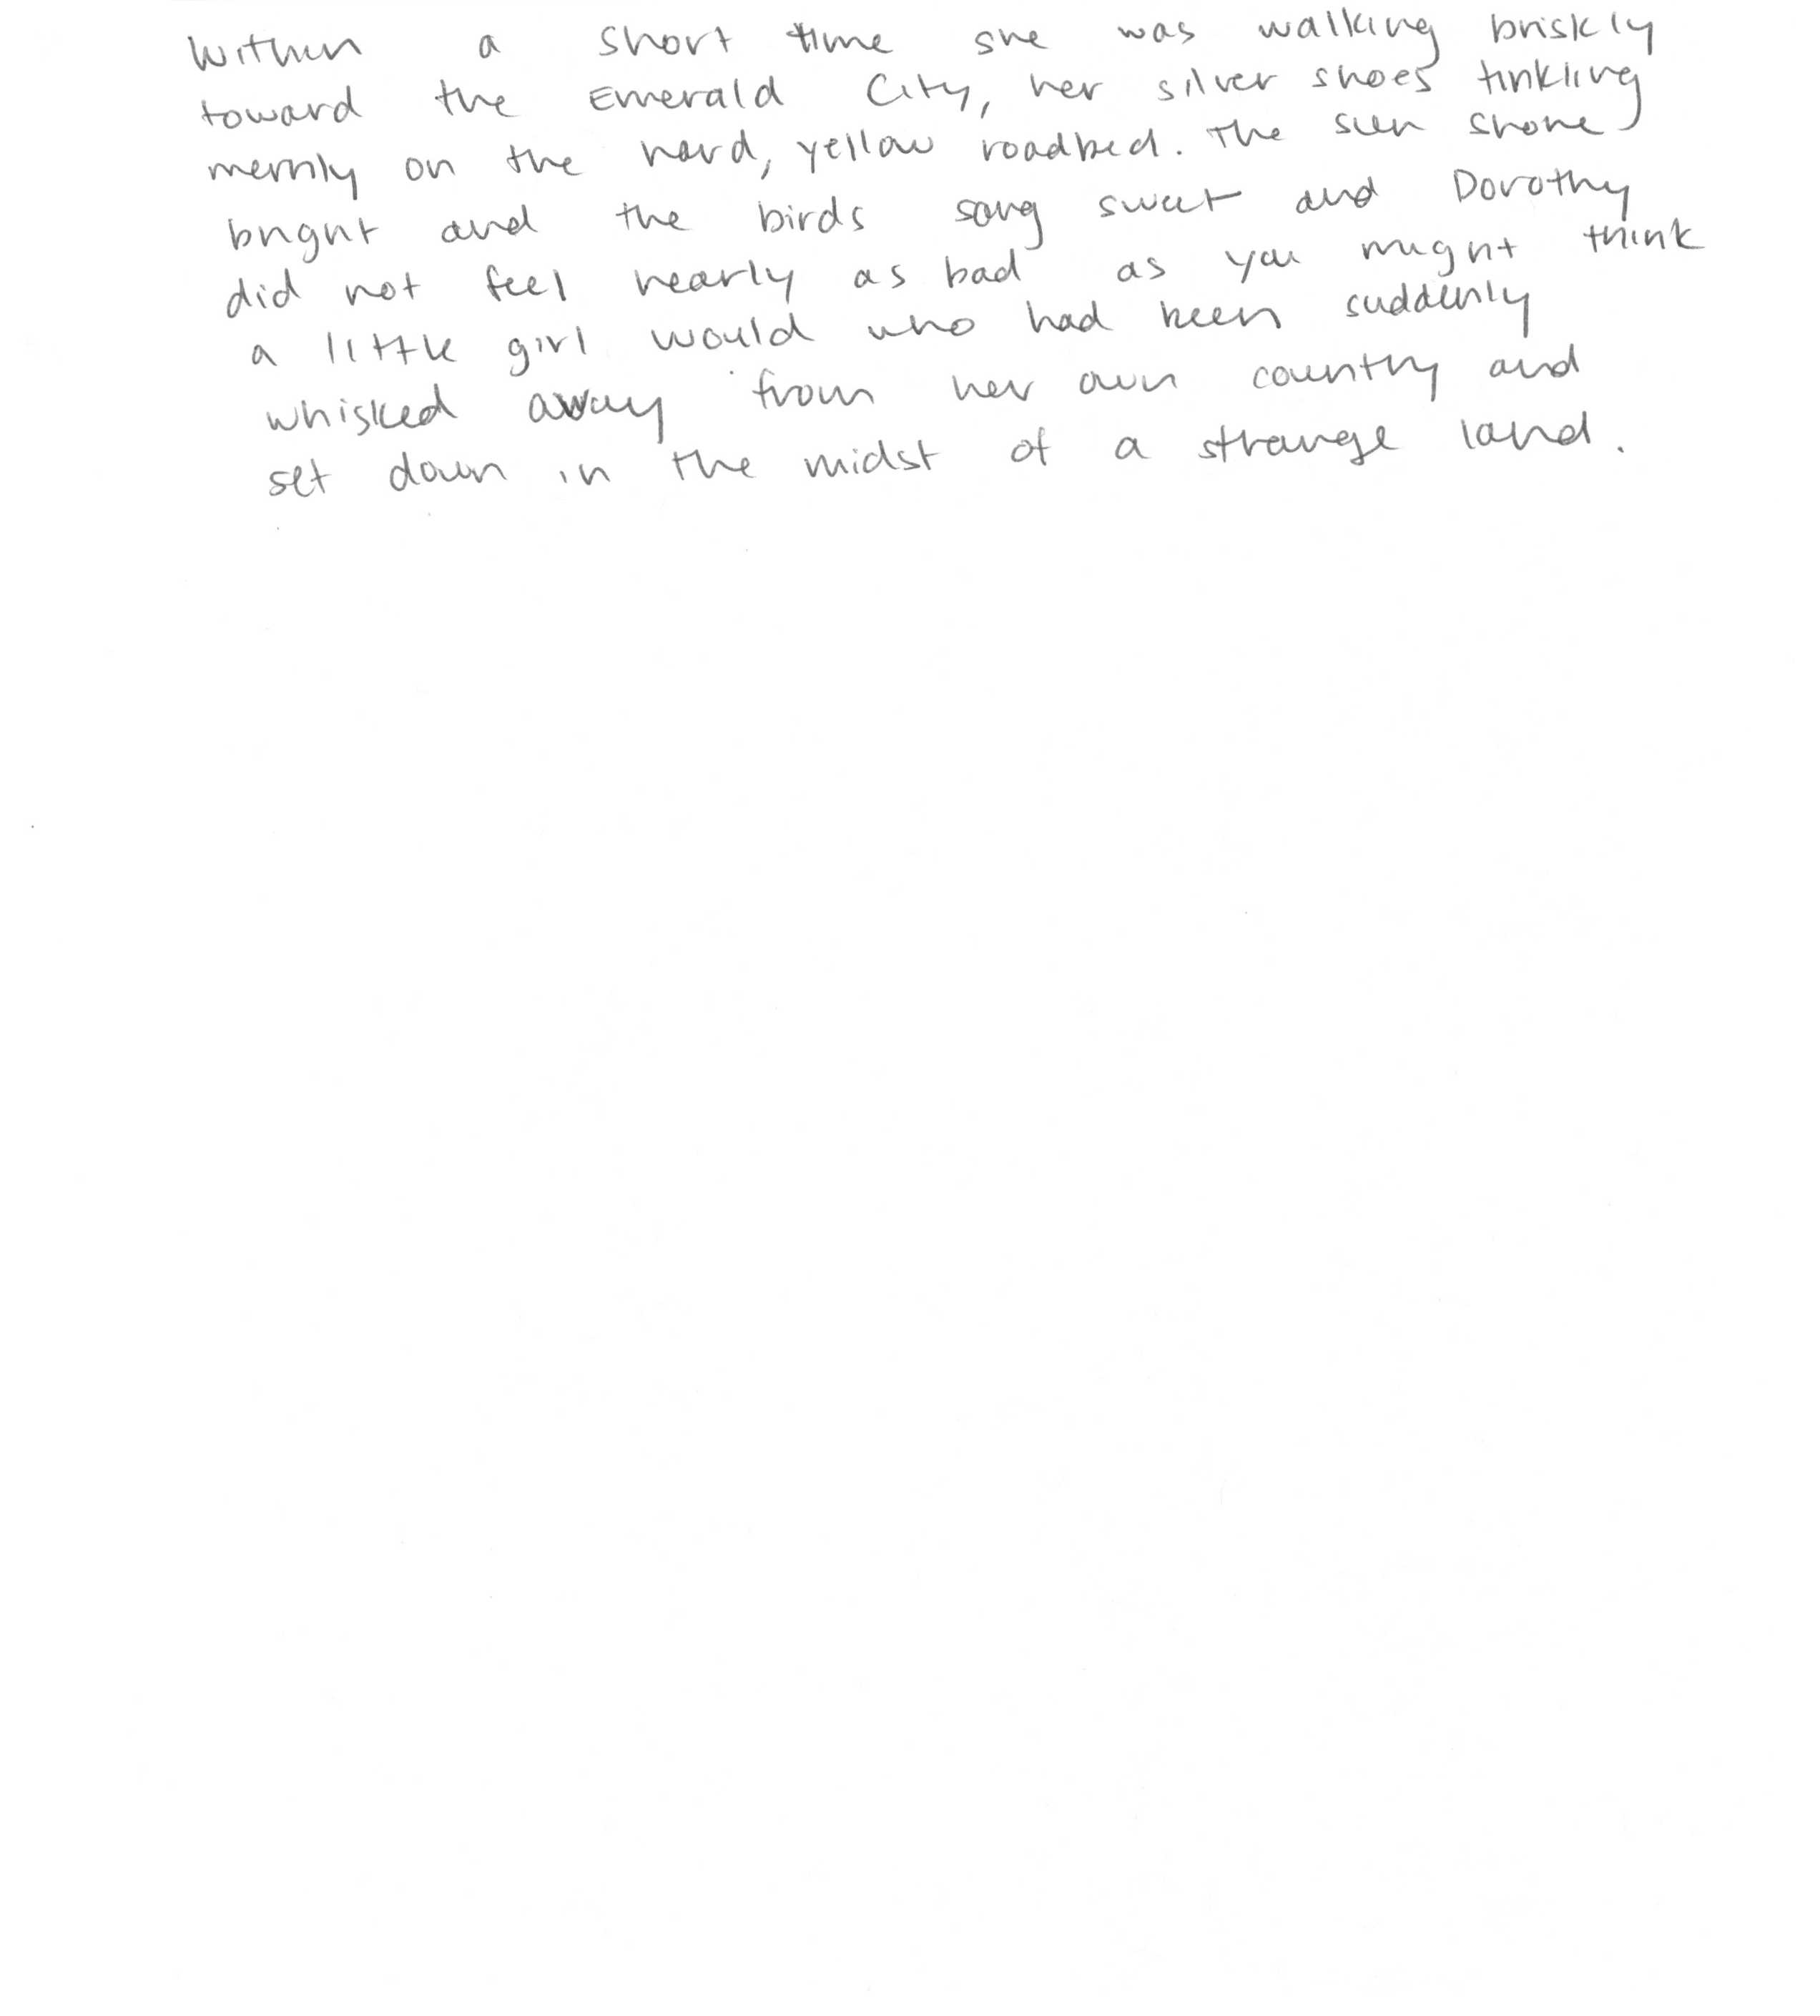 Within a short time she was walking briskly
toward the Emerald City, her silver shoes tinkling
merrily on the hard, yellow roadbed. The sun shone
bright and the birds sang sweet and Dorothy
did not feel nearly as bad as you might think
a little girl would who had been suddenly
whisked away from her own country and
set down in the midst of a strange land.